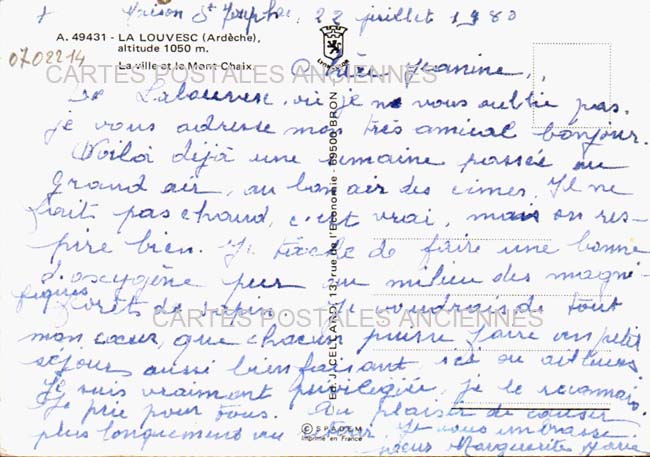 + Maison St Joseph 22 juillet 1980
A. 49431 - LA LOUVESC (Ardèche),
altitude 1050 m.
0702214
La ville et le Mont Chaix
CARTES POSTALES ANCIENNES
Chère Jeanine,
De Lalouvesc, où je ne vous oublie pas.
je vous adresse mon très amical bonjour.
Voilà déjà une semaine passée au
grand air, au bon air des cimes. Il ne
fait pas chaud, c'est vrai, mais on res-
pire bien. Je tâche de faire une bonne
d'oxygène pur au milieu des magni-
fiques forêts de sapin. Je voudrais de tout
CARTES POSTALES ANCIENNES
mon cœur, que chacun puisse faire un petit
séjour aussi bienfaisant ici ou ailleurs
Je suis vraiment privilégiée, je le reconnais.
Je prie pour tous. Au plaisir de causer
plus longuement au Je vous embrasse.
Sœur Marguerite Marie
Ed. J. CELLARD, 13, rue de l'Economie - 69500 BRON
© SPADEM
Imprimé en France